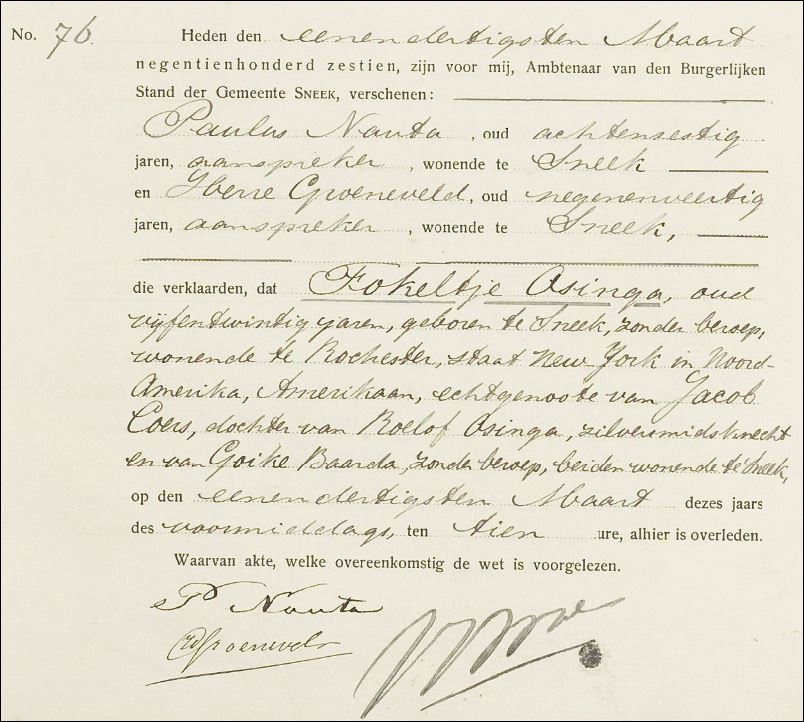 No. 76. Heden den eenendertigsten Maart
negentienhonderd zestien, zijn voor mij, Ambtenaar van den Burgerlijken
Stand der Gemeente SNEEK, verschenen:
Paulus Nauta, oud achtenzestig
jaren, aanspreker, wonende te Sneek
en IJberre Groeneveld, oud negenenveertig
jaren, aanspreker, wonende te Sneek,
die verklaarden, dat Fokeltje Osinga, oud
vijfentwintig jaren, geboren te Sneek, zonder beroep,
wonende te Rochester, staat New York in Noord-
Amerika, Amerikaan, echtgenoote van Jacob
Coers, dochter van Roelof Osinga, zilversmidsknecht
en van Goike Baarda, zonder beroep, beiden wonende te Sneek,
op den eenendertigsten Maart dezes jaars
des voormiddags, ten tien ure, alhier is overleden.
Waarvan akte, welke overeenkomstig de wet is voorgelezen.
P Nauta
Groeneveld